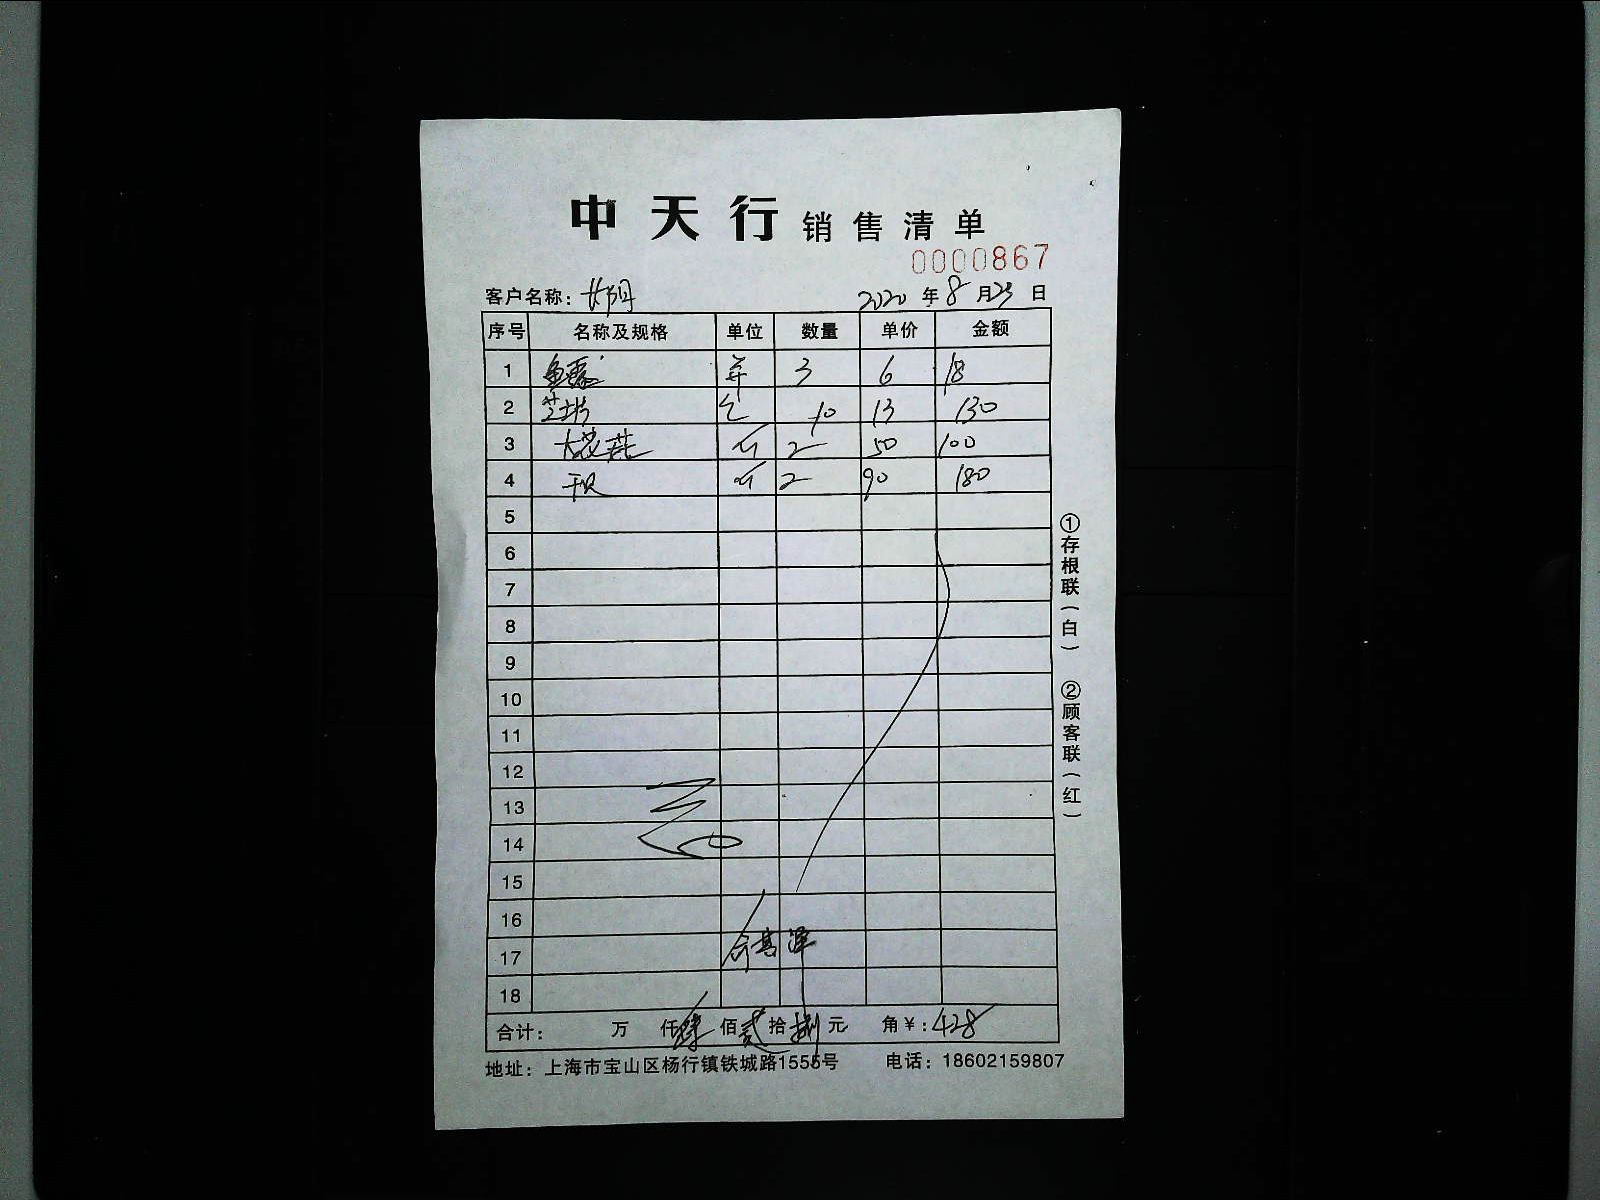 中天行 销售清单
0000867
客户名称：
2020 年 8 月 25 日
序号 名称及规格 单位 数量 单价 金额
1 鱼露 并 3 6 18
2 10 13 130
3 斤 2 50 100
4 干贝 斤 2 90 180
5
6
7
8
9
10
11
12
13
14
15
16
17
18
合计： 万 仟 肆 佰 贰 拾 捌 元 角 ¥：428
地址：上海市宝山区杨行镇铁城路1555号 电话：18602159807
①存根联（白） ②顾客联（红）